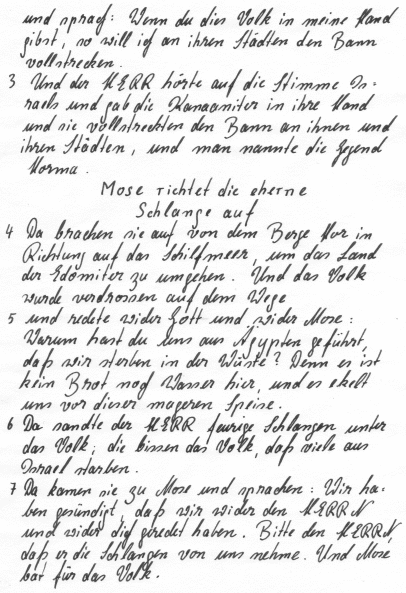 und sprach: Wenn du dies Volk in meine Hand
gibst, so will ich an ihren Städten den Bann
vollstrecken.
3 Und der HERR hörte auf die Stimme Is-
raels und gab die Kanaaniter in ihre Hand
und sie vollstreckten den Bann an ihnen und
ihren Städten, und man nannte die Gegend
Horma.
Mose richtet die eherne
Schlange auf
4 Da brachen sie auf von dem Berge Hor in
Richtung auf das Schilfmeer, um das Land
der Edomiter zu umgehen. Und das Volk
wurde verdrossen auf dem Wege
5 und redete wider Gott und wider Mose:
Warum hast du uns aus Ägypten geführt,
daß wir sterben in der Wüste? Denn es ist
kein Brot noch Wasser hier, und es ekelt
uns vor dieser mageren Speise.
6 Da sandte der HERR feurige Schlangen unter
das Volk; die bissen das Volk, daß viele aus
Israel starben.
7 Da kamen sie zu Mose und sprachen: Wir ha-
ben gesündigt, daß wir wider den HERRN
und wider dich geredet haben. Bitte den HERRN,
daß er die Schlangen von uns nehme. Und Mose
bat für das Volk.